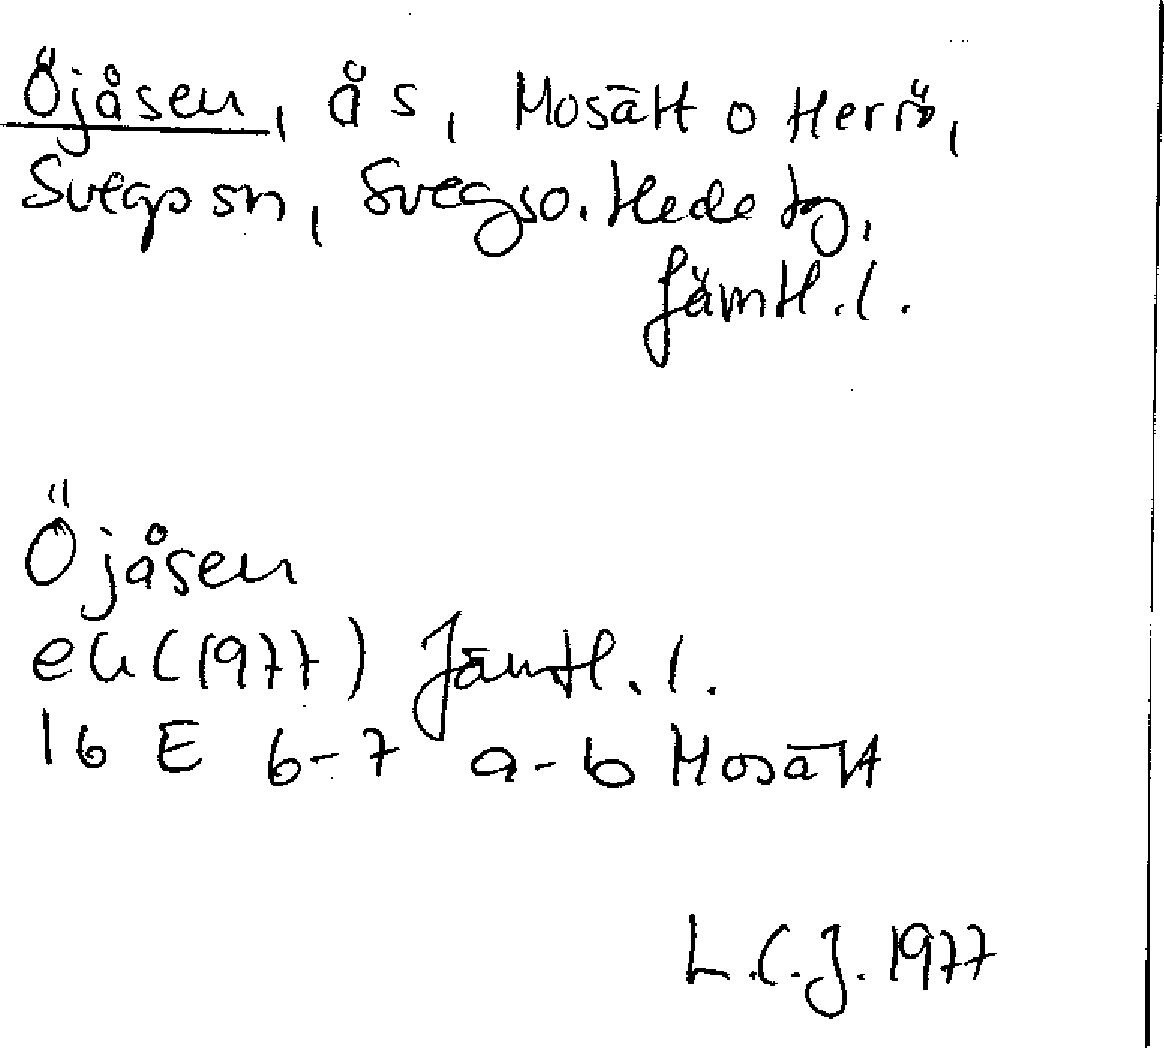 Öjåsen, ås, Mosätt o Herrö,
Svegs sn, Svegs o. Hede tg,
Jämtl. l.
Öjåsen
ek (1977) Jämtl. l.
16 E 6-7 a-b Mosätt
L.C.J. 1977